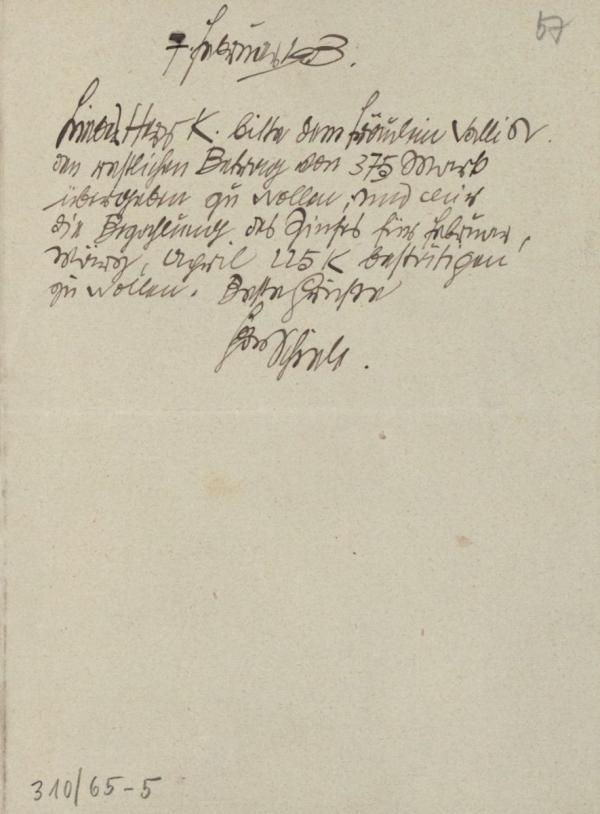 57
7. Februar 1913.
Lieber Herr K. bitte dem Fräulein Valli N.
den restlichen Betrag von 375 Mark
übergeben zu wollen, und mir
die Bezahlung des Zinses für Februar,
März, April 225 K bestätigen
zu wollen. Beste Grüsse
Schiele.
310/65-5